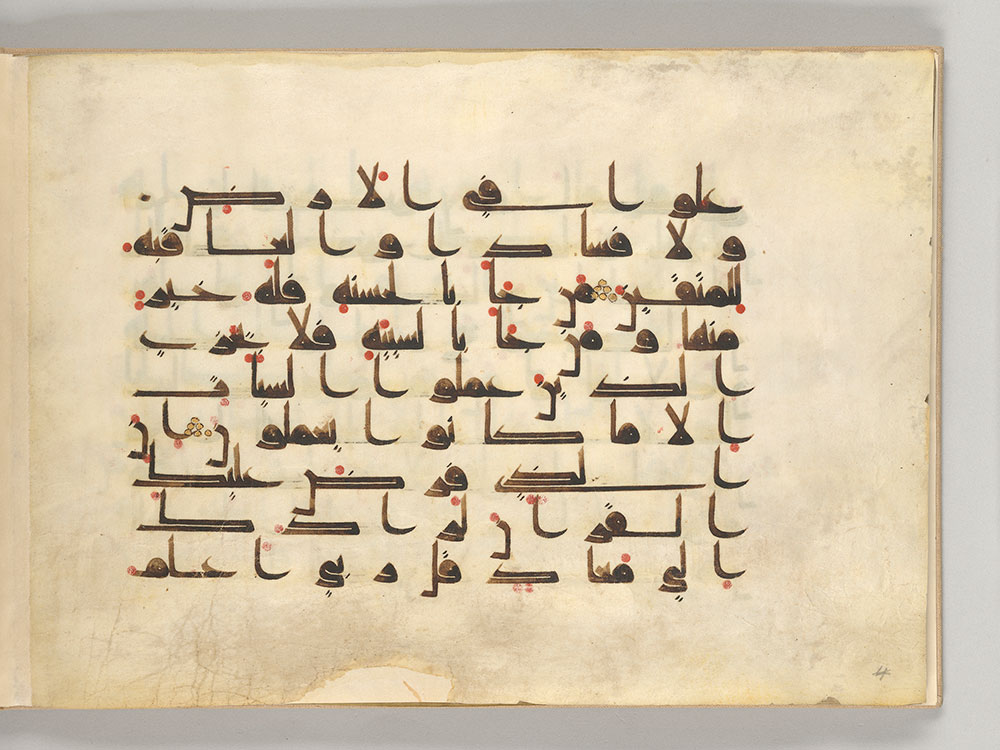 علوا في الارض
ولا فسادا والعاقبه
للمتقين من جا بالحسنه فله خير
منها ومن جا بالسيئه فلا يجزى
الذين عملوا السيات
الا ما كانوا يعملون ان
الذي فرض عليك
القران لرادك
الى معاد قل ربي اعلم
4